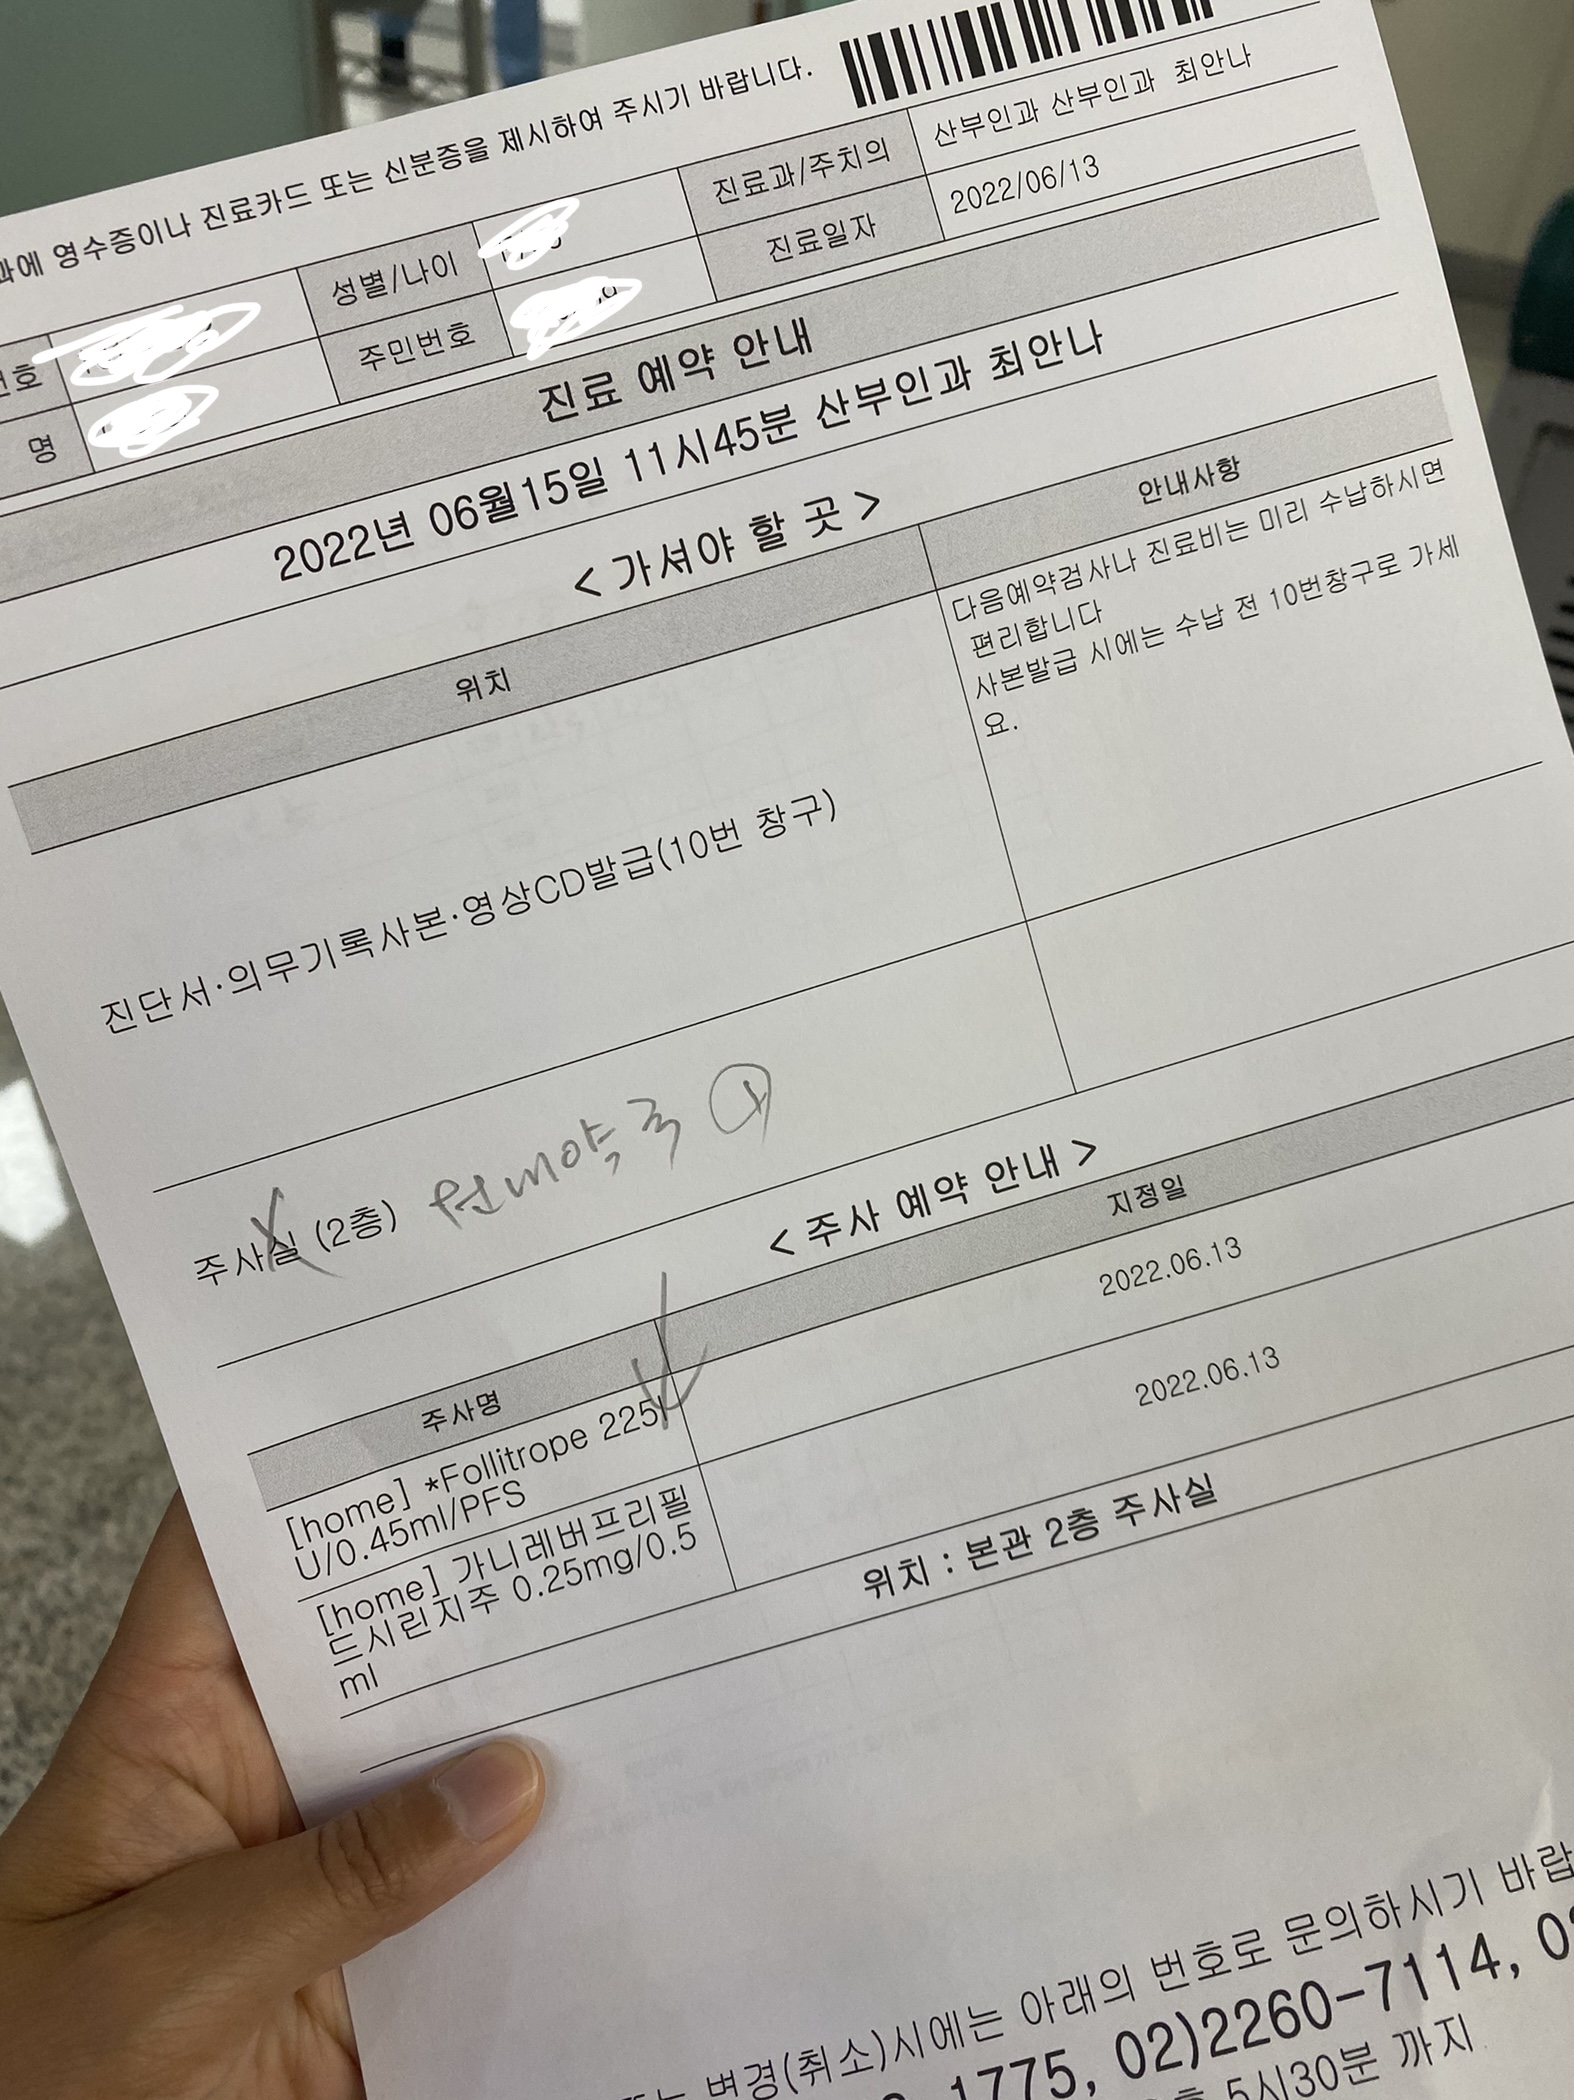 과에 영수증이나 진료카드 또는 신분증을 제시하여 주시기 바랍니다.
번호 성별/나이 진료과/주치의 산부인과 산부인과 최안나
명 주민번호 진료일자 2022/06/13
진료 예약 안내
2022년 06월15일 11시45분 산부인과 최안나
< 가셔야 할 곳 >
위치 안내사항
진단서·의무기록사본·영상CD발급(10번 창구)
다음예약검사나 진료비는 미리 수납하시면
편리합니다
사본발급 시에는 수납 전 10번창구로 가세
요.
주사실 (2층) 원내약국
< 주사 예약 안내 >
주사명 지정일
[home] *Follitrope 225I
U/0.45ml/PFS
2022.06.13
[home] 가니레버프리필
드시린지주 0.25mg/0.5
ml
2022.06.13
위치 : 본관 2층 주사실
변경(취소)시에는 아래의 번호로 문의하시기 바랍
1775, 02)2260-7114, 0
5시30분 까지